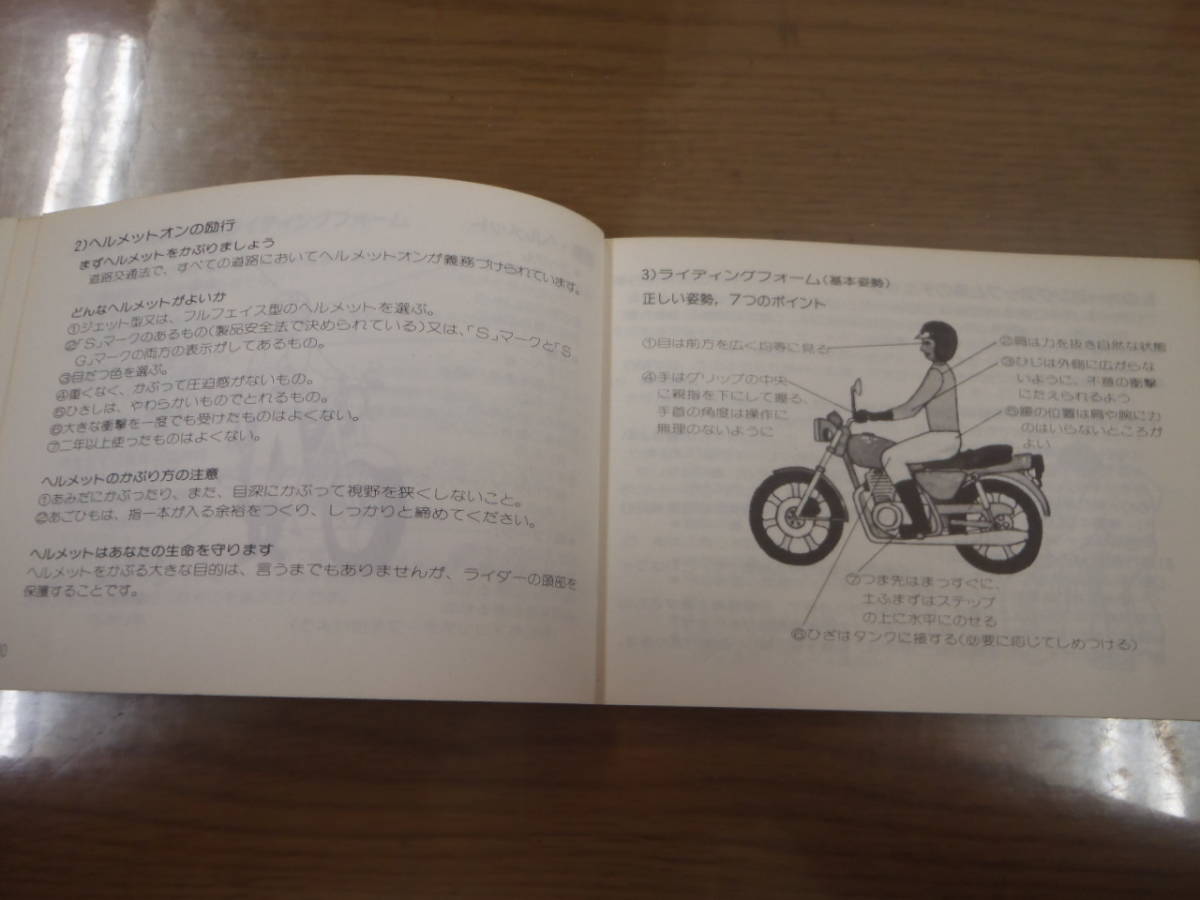 2)ヘルメットオンの励行
まずヘルメットをかぶりましょう
道路交通法で、すべての道路においてヘルメットオンが義務づけられています。
どんなヘルメットがよいか
①ジェット型又は、フルフェイス型のヘルメットを選ぶ。
②「S」マークのあるもの(製品安全法で決められている)又は、「S」マークと「S.
G」マークの両方の表示がしてあるもの。
③目だつ色を選ぶ。
④重くなく、かぶって圧迫感がないもの。
⑤ひさしは、やわらかいものでとれるもの。
⑥大きな衝撃を一度でも受けたものはよくない。
⑦二年以上使ったものはよくない。
ヘルメットのかぶり方の注意
①あみだにかぶったり、また、目深にかぶって視野を狭くしないこと。
②あごひもは、指一本が入る余裕をつくり、しっかりと締めてください。
ヘルメットはあなたの生命を守ります
ヘルメットをかぶる大きな目的は、言うまでもありませんが、ライダーの頭部を
保護することです。
3)ライディングフォーム(基本姿勢)
正しい姿勢，7つのポイント
①目は前方を広く均等に見る
②肩は力を抜き自然な状態
③ひじは外側に広がらな
いように、不意の衝撃
にたえられるよう
④手はグリップの中央
に親指を下にして握る、
手首の角度は操作に
無理のないように
⑤腰の位置は肩や腕に力
のはいらないところが
よい
⑦つま先はまっすぐに、
土ふまずはステップ
の上に水平にのせる
⑥ひざはタンクに接する(必要に応じてしめつける)